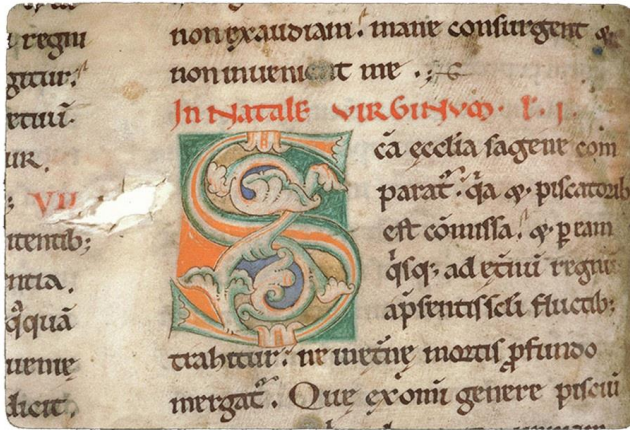 regni
gitur.
UR.
VII
itentib;
entia.
q̃quã
dicit.
non exaudiam. mane consurgent
non inuenient me.
In Natale VIRGINVM. L. I.
Scã ecclia sagene com
parat. q̃a & piscatorib
est cõmissa. & p eram
q̃sq; ad et̃nũ regnũ
a p̃sentis scli fluctib;
trahitur. ne in et̃ne mortis p̃fundo
mergat. Que ex om̃i genere pisciũ